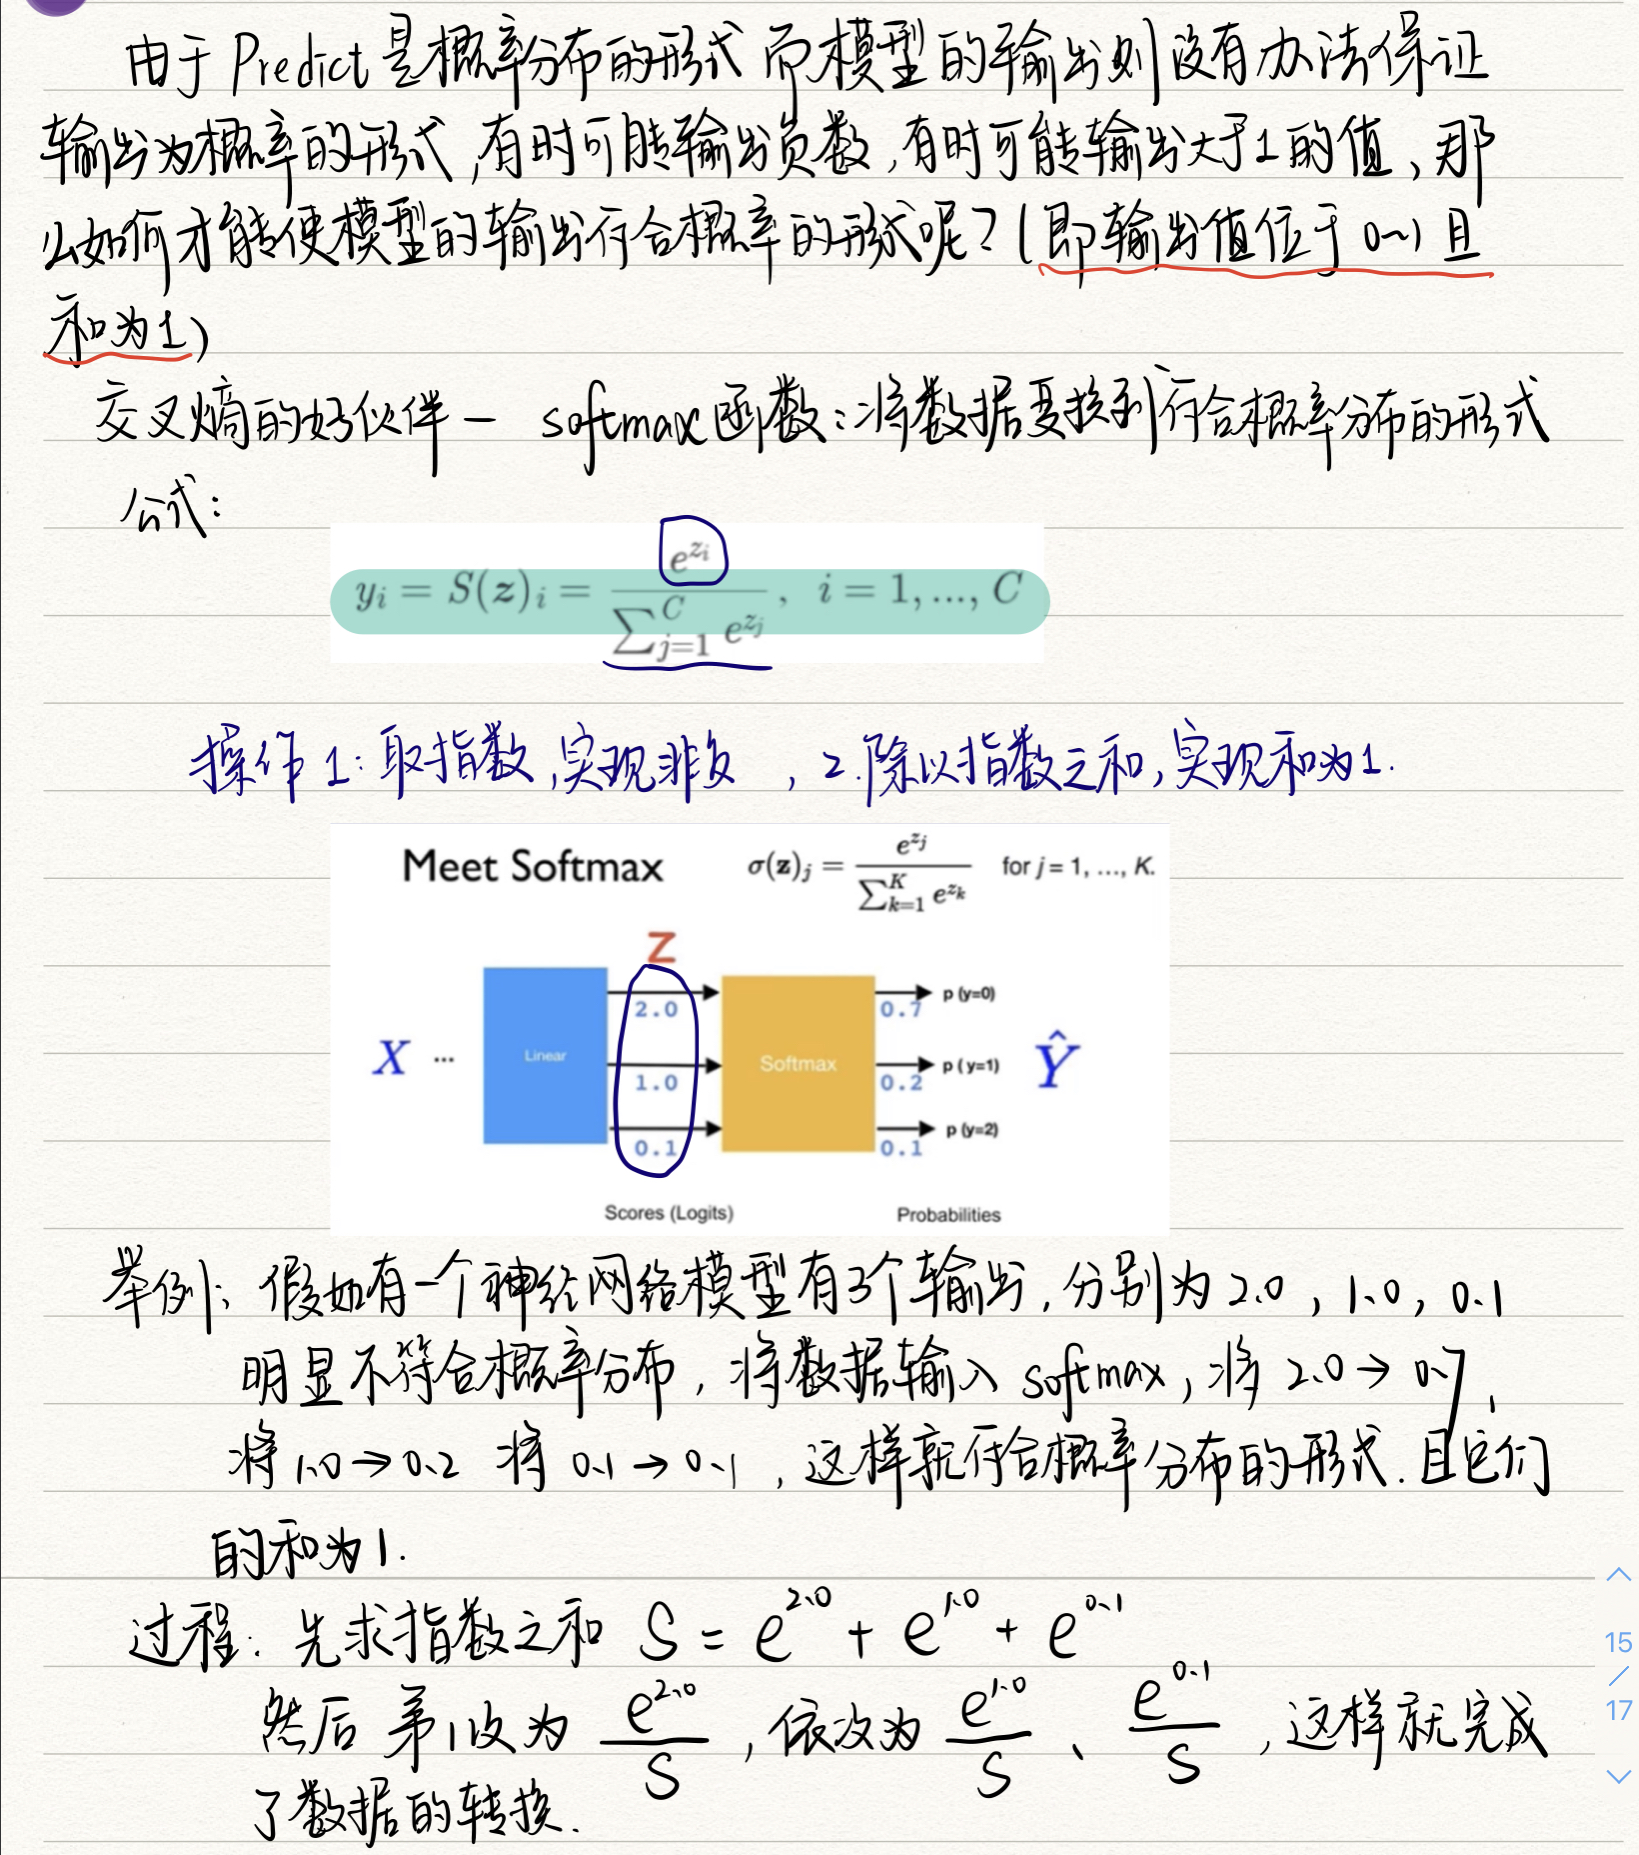 由于 Predict 是概率分布的形式 而模型的输出则没有办法保证
输出为概率的形式,有时可能输出负数,有时可能输出大于1的值、那
么如何才能使模型的输出符合概率的形式呢?(即输出值位于0~1且
和为1)
交叉熵的好伙伴— softmax函数:将数据变换到符合概率分布的形式
公式:
y_i = S(z)_i = e^{z_i} / ∑_{j=1}^{C} e^{z_j}, i = 1, ..., C
操作1:取指数,实现非负 ,2.除以指数之和,实现和为1.
Meet Softmax σ(z)_j = e^{z_j} / ∑_{k=1}^{K} e^{z_k} for j = 1, ..., K.
Z
2.0 0.7 p (y=0)
X ... Linear 1.0 Softmax 0.2 p (y=1) Ŷ
0.1 0.1 p (y=2)
Scores (Logits) Probabilities
举例:假如有一个神经网络模型有3个输出,分别为2.0,1.0,0.1
明显不符合概率分布,将数据输入softmax,将2.0→0.7,
将1.0→0.2 将0.1→0.1,这样就符合概率分布的形式.且它们
的和为1.
过程:先求指数之和 S = e^{2.0} + e^{1.0} + e^{0.1}
然后 第1次为 e^{2.0}/S ,依次为 e^{1.0}/S 、 e^{0.1}/S ,这样就完成
了数据的转换.
15
/
17